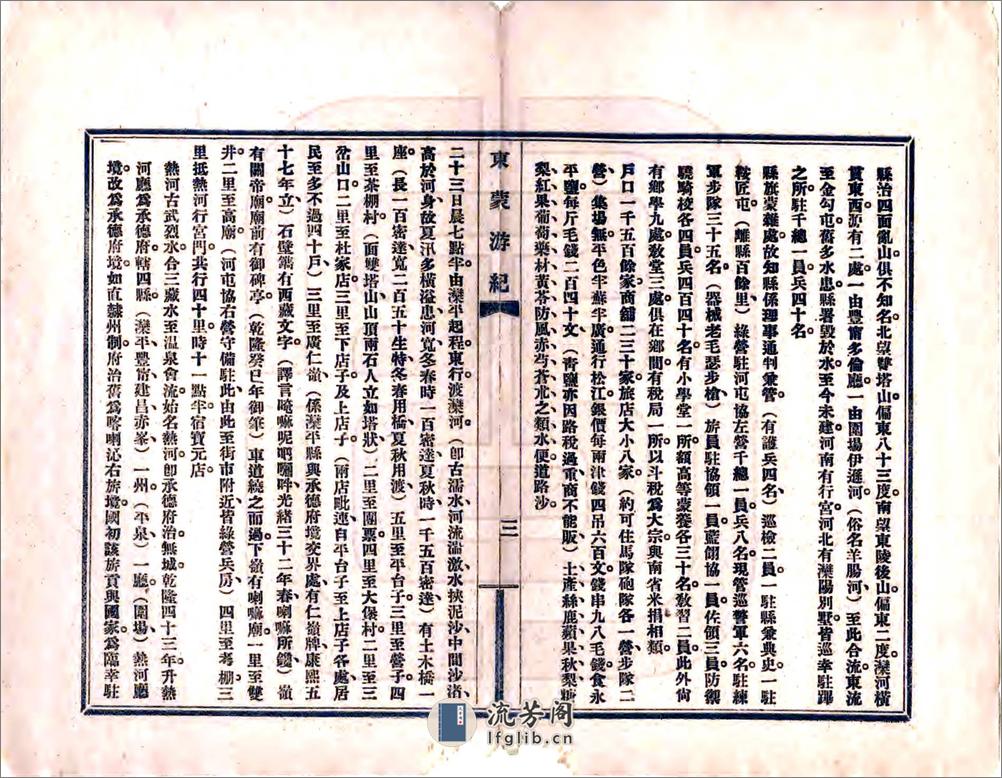 縣治四面亂山俱不知名北望雙塔山偏東八十三度南望東陵後山偏東二度灤河橫
貫東西源有二處一由豐甯多倫廳一由圍場伊遜河（俗名羊腸河）至此合流東流
至金勾屯舊多水患縣署毀於水至今未建河南有行宮河北有灤陽別墅皆巡幸駐蹕
之所駐千總一員兵四十名
縣旗蒙雜處故知縣係理事通判兼管（有護兵四名）巡檢二員一駐縣兼典史一駐
鞍匠屯（離縣百餘里）綠營駐河屯協左營千總一員兵八名現管巡警軍六名駐練
軍步隊三十五名（器械老毛瑟步槍）旂員駐協領一員藍翎協一員佐領三員防禦
驍騎校各四員兵四百四十名有小學堂一所額高等蒙養各三十名教習二員此外尙
有鄉學九處教堂三處俱在鄉間有稅局一所以斗稅爲大宗與南省米捐相類
戶口一千五百餘家商舖二三十家旅店大小八家（約可住馬隊砲隊各一營步隊二
營）集場無平色半蘇半廣通行松江銀價每兩津錢四吊六百文錢串九八毛錢食永
平鹽每斤毛錢二百四十文（靑鹽亦因路稅過重商不能販）土產絲鹿蘋果秋梨糖
梨紅果葡萄藥材黃芩防風赤芍蒼朮之類水便道路沙
東蒙游紀
三
二十三日晨七點半由灤平起程東行渡灤河（卽古濡水河流湍激水挾泥沙中間沙渚
高於河身故夏汛多橫溢患河寬冬春時一百密達夏秋時一千五百密達）有土木橋一
座（長一百密達寬二百五十生特冬春用橋夏秋用渡）五里至平台子三里至營子四
里至茶棚村（面雙塔山山頂兩石人立如塔狀）二里至團票四里至大堡村二里至三
岔山口二里至杜家店三里至下店子及上店子（兩店毗連自平台子至上店子各處居
民至多不過四十戶）三里至廣仁嶺（係灤平縣與承德府境交界處有仁嶺牌康熙五
十七年立）石壁鐫有西藏文字（譯言唵嘛呢叭囉吽光緒三十二年春喇嘛所鐫）嶺
有關帝廟廟前有御碑亭（乾隆癸巳年御筆）車道繞之而過下嶺有喇嘛廟一里至雙
井二里至高廟（河屯協右營守備駐此由此至街市附近皆綠營兵房）四里至考棚三
里抵熱河行宮門共行四十里時十一點半宿寶元店
熱河古武烈水合三藏水至温泉會流始名熱河卽承德府治無城乾隆四十三年升熱
河廳爲承德府轄四縣（灤平豐甯建昌赤峯）一州（平泉）一廳（圍場）熱河廳
境改爲承德府境如直隸州制府治舊爲喀喇沁右旂境國初該旂貢與國家爲臨幸駐
流芳阁
lfglib.cn